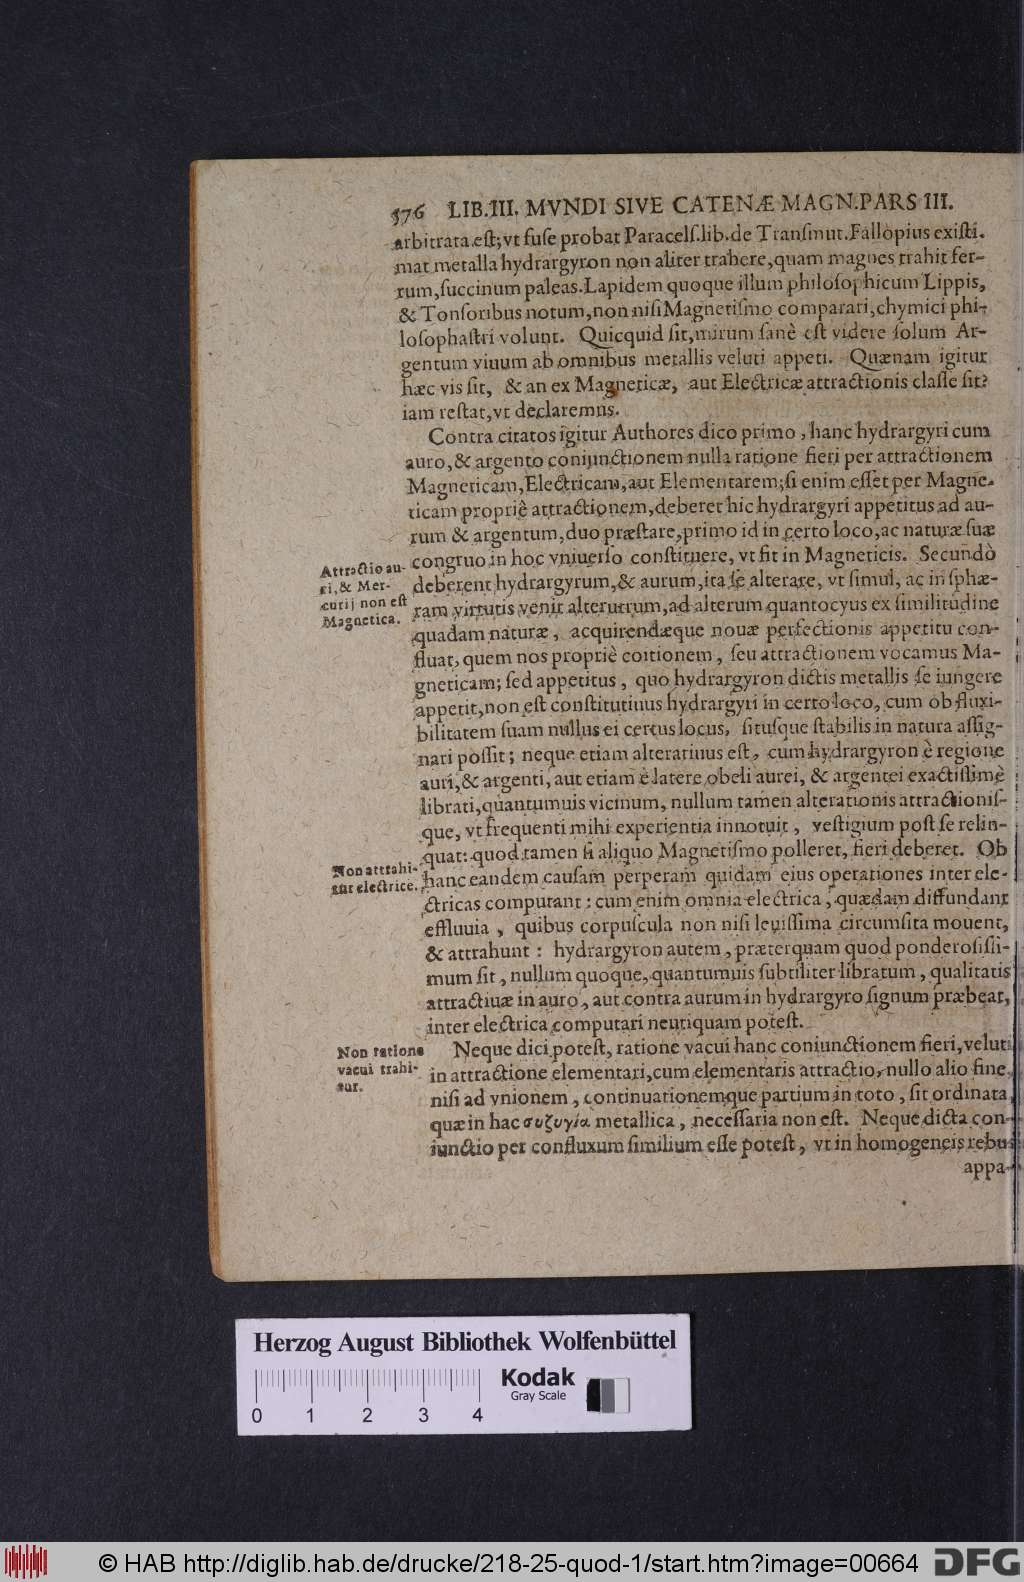 576 LIB.III. MVNDI SIVE CATENÆ MAGN.PARS III.
arbitrata est; vt fuse probat Paracelſ.lib.de Tranſmut.Fallopius exiſti-
mat metalla hydrargyron non aliter trahere, quam magnes trahit fer-
rum, ſuccinum paleas. Lapidem quoque illum philoſophicum Lippis,
& Tonſoribus notum, non niſi Magnetiſmo comparari, chymici phi-
loſophaſtri volunt. Quicquid ſit, mirum ſanè eſt videre ſolum Ar-
gentum viuum ab omnibus metallis veluti appeti. Quænam igitur
hæc vis ſit, & an ex Magneticæ, aut Electricæ attractionis claſſe ſit?
iam reſtat, vt declaremus.
Contra citatos igitur Authores dico primo, hanc hydrargyri cum
auro, & argento coniunctionem nulla ratione fieri per attractionem
Magneticam, Electricam, aut Elementarem; ſi enim eſſet per Magne-
ticam propriè attractionem, deberet hic hydrargyri appetitus ad au-
rum & argentum, duo præſtare, primo id in certo loco, ac naturæ ſuæ
congruo in hoc vniuerſo conſtituere, vt fit in Magneticis. Secundò
deberent hydrargyrum, & aurum, ita ſe alterare, vt ſimul, ac in ſphæ-
ram virtutis venit alterutrum, ad alterum quantocyus ex ſimilitudine
quadam naturæ, acquirendæque nouæ perfectionis appetitu con-
fluat, quem nos propriè coitionem, ſeu attractionem vocamus Ma-
gneticam; ſed appetitus, quo hydrargyron dictis metallis ſe iungere
appetit, non eſt conſtitutiuus hydrargyri in certo loco, cum ob fluxi-
bilitatem ſuam nullus ei certus locus, ſituſque ſtabilis in natura aſſig-
nari poſſit; neque etiam alteratiuus eſt, cum hydrargyron è regione
auri, & argenti, aut etiam è latere obeli aurei, & argentei exactiſſimè
librati, quantumuis vicinum, nullum tamen alterationis attractioniſ-
que, vt frequenti mihi experientia innotuit, veſtigium poſt ſe relin-
quat: quod tamen ſi aliquo Magnetiſmo polleret, fieri deberet. Ob
hanc eandem cauſam perperam quidam eius operationes inter ele-
ctricas computant: cum enim omnia electrica, quædam diffundant
effluuia, quibus corpuſcula non niſi leuiſſima circumſita mouent,
& attrahunt: hydrargyron autem, præterquam quod ponderoſiſſi-
mum ſit, nullum quoque, quantumuis ſubtiliter libratum, qualitatis
attractiuæ in auro, aut contra aurum in hydrargyro ſignum præbeat,
inter electrica computari neutiquam poteſt.
Neque dici poteſt, ratione vacui hanc coniunctionem fieri, veluti
in attractione elementari, cum elementaris attractio, nullo alio fine,
niſi ad vnionem, continuationemque partium in toto, ſit ordinata,
quæ in hac συζυγία metallica, neceſſaria non eſt. Neque dicta con-
iunctio per confluxum ſimilium eſſe poteſt, vt in homogeneis rebus
appa-
Attractio au-
ri, & Mer-
curij non eſt
Magnetica.
Non attrahi-
tur electrice.
Non ratione
vacui trahi-
tur.
Herzog August Bibliothek Wolfenbüttel
Kodak
Gray Scale
0 1 2 3 4
© HAB http://diglib.hab.de/drucke/218-25-quod-1/start.htm?image=00664
DFG